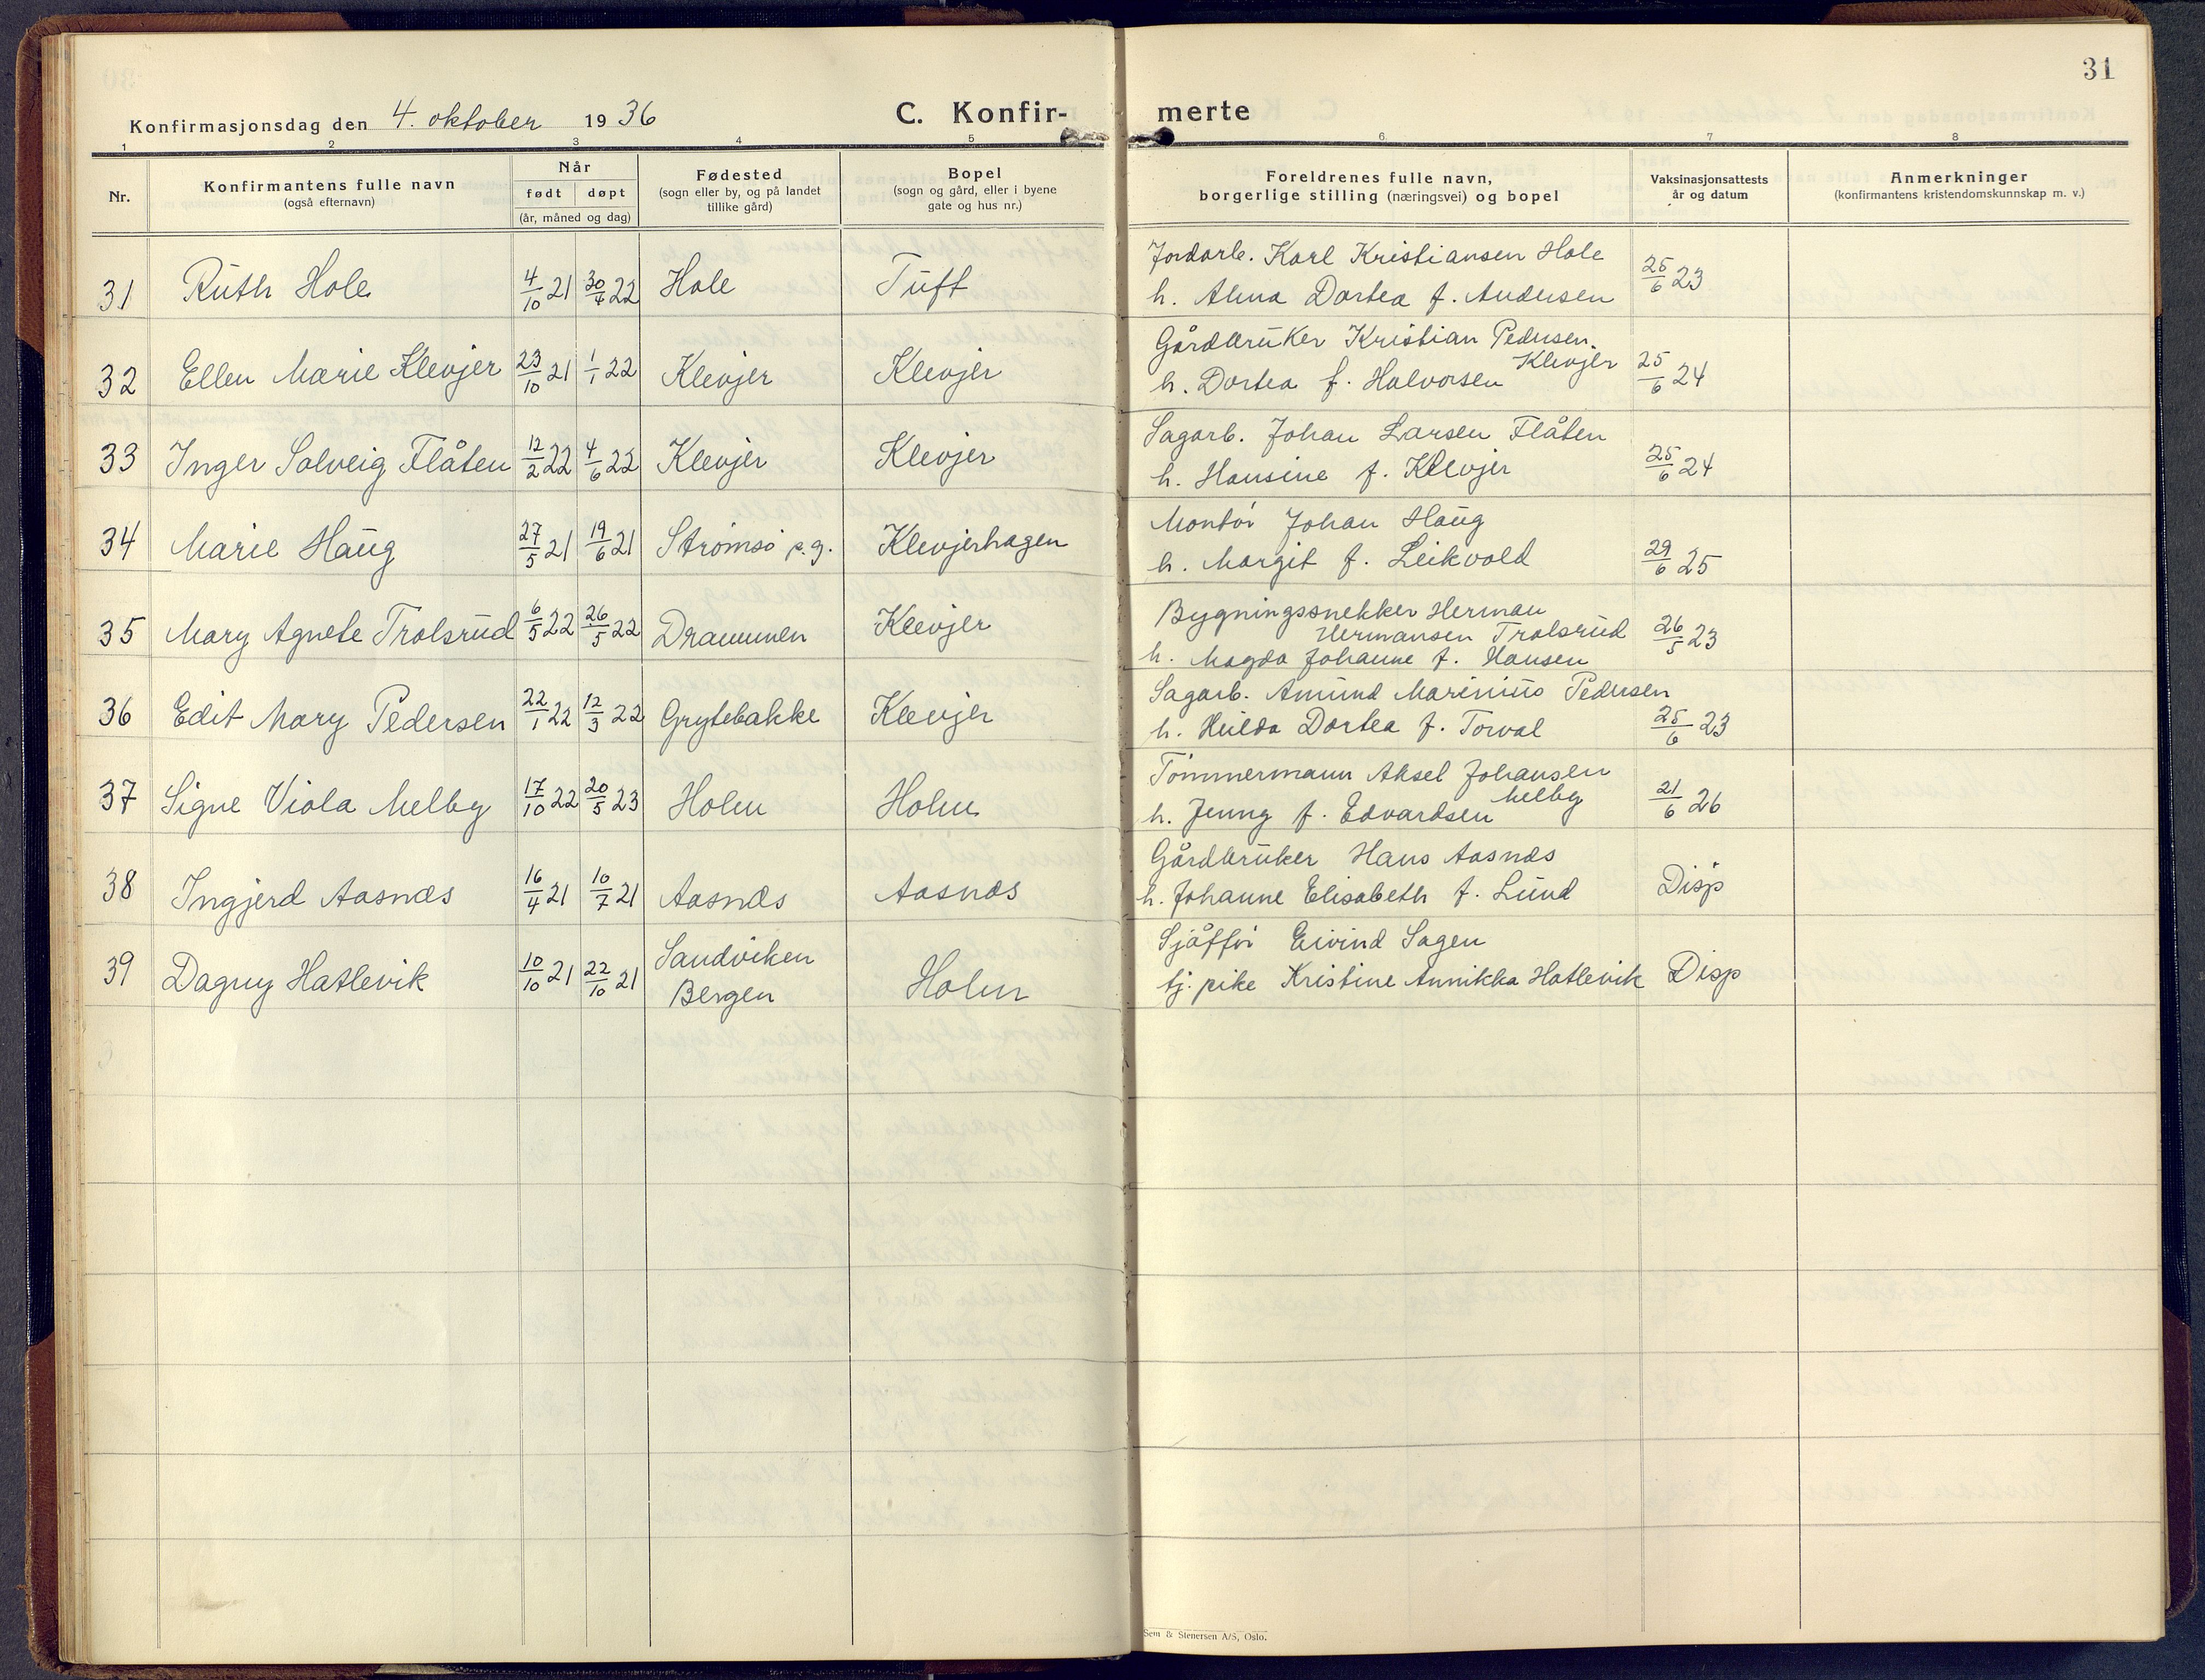 31
Konfirmasjonsdag den 4. oktober 1936
C. Konfir-merte
1 2 3 4 5 6 7 8
Nr.
Konfirmantens fulle navn
(også efternavn)
Når
født døpt
(år, måned og dag)
Fødested
(sogn eller by, og på landet
tillike gård)
Bopel
(sogn og gård, eller i byene
gate og hus nr.)
Foreldrenes fulle navn,
borgerlige stilling (næringsvei) og bopel
Vaksinasjonsattests
år og datum
Anmerkninger
(konfirmantens kristendomskunnskap m. v.)
31 Ruth Hole 4/10 21 30/4 22 Hole Tuft
Jordarb. Karl Kristiansen Hole
h. Alma Dortea f. Andersen
25/6 23
32 Ellen Marie Klevjer 23/10 21 1/1 22 Klevjer Klevjer
Gårdbruker Kristian Pedersen
Klevjer
h. Dortea f. Halvorsen
25/6 24
33 Inger Solveig Flåten 12/2 22 4/6 22 Klevjer Klevjer
Sagarb. Johan Larsen Flåten
h. Hansine f. Klevjer
25/6 24
34 Marie Haug 27/5 21 19/6 21 Strømsø p.g. Klevjerhagen
Montør Johan Haug
h. Margit f. Leikvold
29/6 25
35 Mary Agnete Trolsrud 6/5 22 26/5 22 Drammen Klevjer
Bygningssnekker Herman
Hermansen Trolsrud
h. Magda Johanne f. Hansen
26/5 23
36 Edit Mary Pedersen 22/1 22 12/3 22 Grytebakke Klevjer
Sagarb. Amund Marinius Pedersen
h. Hulda Dortea f. Torval
25/6 23
37 Signe Viola Melby 17/10 22 20/5 23 Holm Holm
Tømmermann Aksel Johansen
Melby
h. Jenny f. Edvardsen
21/6 26
38 Ingjerd Aasnæs 16/4 21 10/7 21 Aasnæs Aasnæs
Gårdbruker Hans Aasnæs
h. Johanne Elisabeth f. Lund
Disp
39 Dagny Hatlevik 10/10 21 22/10 21 Sandviken
Bergen
Holm
Sjåffør Eivind Sagen
tj. pike Kristine Annikka Hatlevik
Disp
Sem & Stenersen A/S, Oslo.